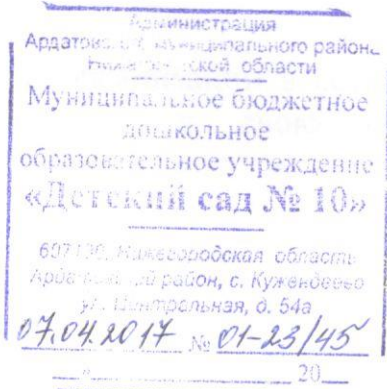 Администрация
Ардатовского муниципального района
Нижегородской области
Муниципальное бюджетное
дошкольное
образовательное учреждение
«Детский сад № 10»
607130, Нижегородская область
Ардатовский район, с. Кужендеево
ул. Центральная, д. 54а
07.04.2017 № 01-23/45
" 20